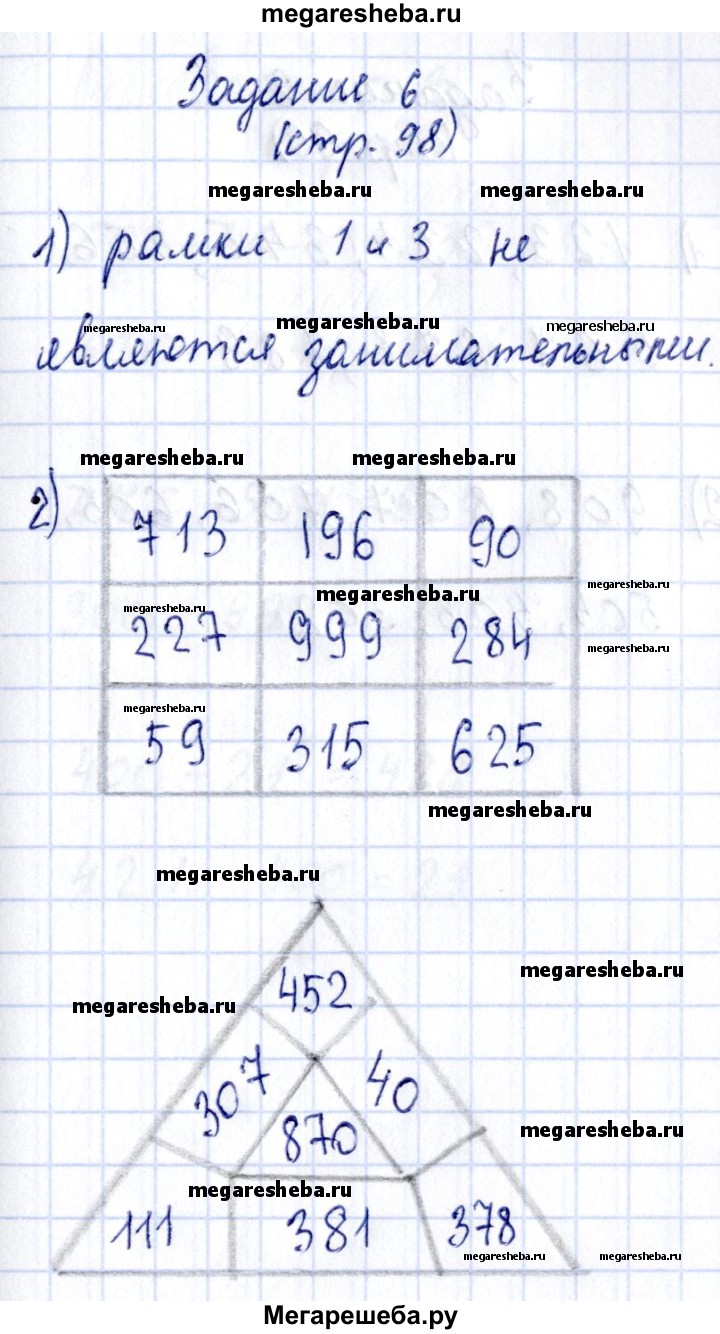 megaresheba.ru
Задание 6
(стр. 98)
megaresheba.ru megaresheba.ru
1) рамки 1 и 3 не
megaresheba.ru megaresheba.ru megaresheba.ru
являются занимательными.
megaresheba.ru megaresheba.ru
2)
713 196 90
megaresheba.ru megaresheba.ru megaresheba.ru
227 999 284
megaresheba.ru
megaresheba.ru
59 315 625
megaresheba.ru
megaresheba.ru
megaresheba.ru
452
megaresheba.ru
307 40
870
megaresheba.ru
megaresheba.ru
111 381 378
megaresheba.ru megaresheba.ru
Мегарешеба.ру